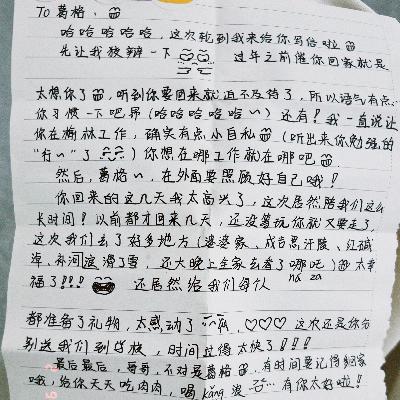 To 葛格、
哈哈哈哈哈，这次轮到我来给你写信啦
先让我放癫一下 过年之前催你回家就是
太想你了，听到你要回来就迫不及待了，所以语气有点、
你习惯一下吧昂（哈哈哈哈哈～）还有！我一直说让
你在榆林工作，确实有点小自私（听出来你勉强的
“行～”了）你想在哪工作就在哪吧
然后，葛格～，在外面要照顾好自己哦！
你回来的这几天我太高兴了，这次居然陪我们这么
长时间！以前都才回来几天，还没等玩你就又要走了，
这次我们去了好多地方（婆婆家、成吉思汗陵、红碱
淖、 河滨滑了雪，还大晚上全家去看了哪吒）太幸
né za
福了!!! 还居然给我们每人
都准备了礼物，太感动了 ♡♡♡ 这次还是你分
别送我们到学校，时间过得太快了!!!!
最后最后，哥哥，不对是葛格，有时间要记得多回家
哦，给你天天吃肉肉，喝 kāng 汤 有你太好啦！